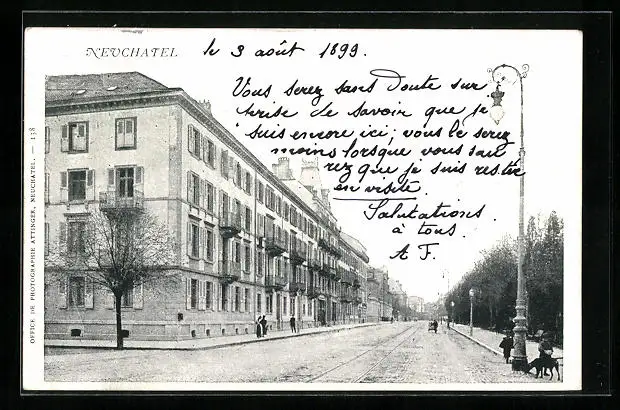 NEUCHATEL
le 3 août 1899.
Vous serez sans Doute sur
prise de savoir que je
suis encore ici; vous le serez
moins lorsque vous sau
rez que je suis restée
en visite.
Salutations
à tous.
A F.
OFFICE DE PHOTOGRAPHIE ATTINGER, NEUCHATEL. — 138